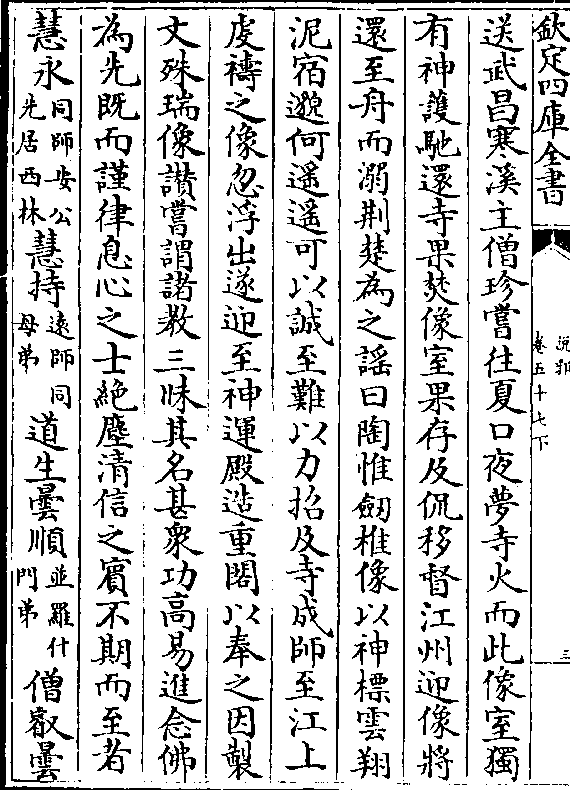 欽定四庫全書
說郛
卷五十七下
三
送武昌寒溪主僧珍嘗往夏口夜夢寺火而此像室獨
有神護馳還寺果焚像室果存及侃移督江州迎像將
還至舟而溺荆楚為之謡曰陶惟劒椎像以神標雲翔
泥宿邈何遥遥可以誠至難以力招及寺成師至江上
虔禱之像忽浮出遂迎至神運殿造重閣以奉之因製
文殊瑞像讃嘗謂諸教三昧其名甚衆功高易進念佛
為先既而謹律息心之士絶塵清信之賓不期而至者
慧永同師安公先居西林慧持遠師同母弟道生曇順並羅什門弟僧叡曇